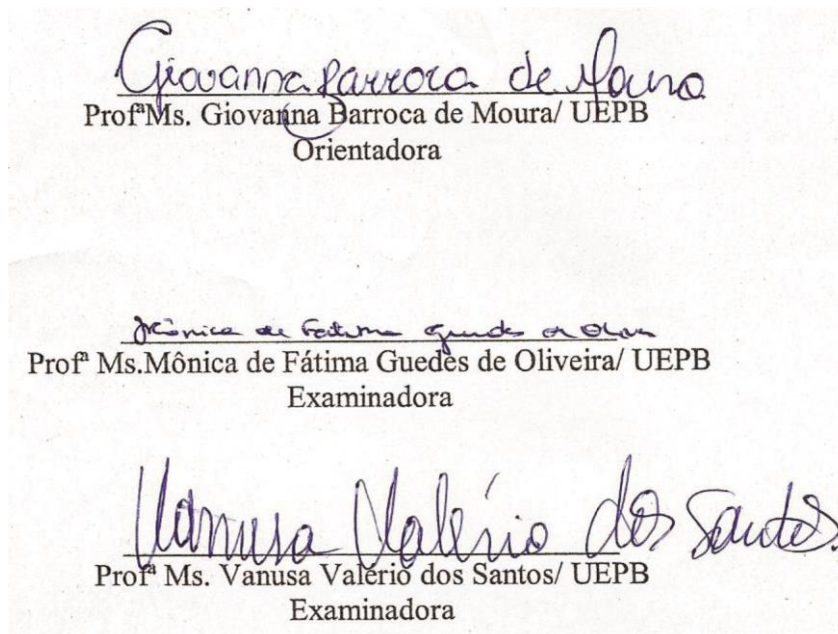 Giovanna Barroca de Moura
ProfªMs. Giovanna Barroca de Moura/ UEPB
Orientadora
Mônica de Fátima Guedes de Oliveira
Profª Ms.Mônica de Fátima Guedes de Oliveira/ UEPB
Examinadora
Vanusa Valério dos Santos
Profª Ms. Vanusa Valério dos Santos/ UEPB
Examinadora